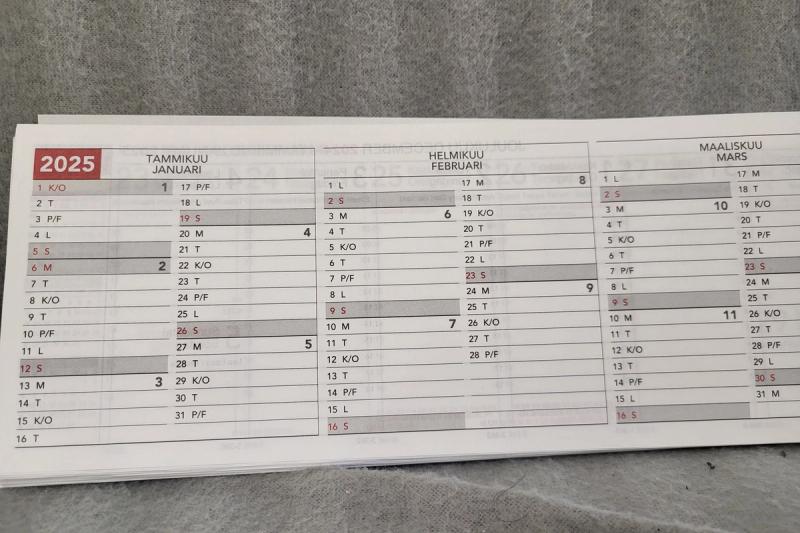 2025
TAMMIKUU
JANUARI
1 K/O 1
2 T
3 P/F
4 L
5 S
6 M 2
7 T
8 K/O
9 T
10 P/F
11 L
12 S
13 M 3
14 T
15 K/O
16 T
17 P/F
18 L
19 S
20 M 4
21 T
22 K/O
23 T
24 P/F
25 L
26 S
27 M 5
28 T
29 K/O
30 T
31 P/F
HELMIKUU
FEBRUARI
1 L
2 S
3 M 6
4 T
5 K/O
6 T
7 P/F
8 L
9 S
10 M 7
11 T
12 K/O
13 T
14 P/F
15 L
16 S
17 M 8
18 T
19 K/O
20 T
21 P/F
22 L
23 S
24 M 9
25 T
26 K/O
27 T
28 P/F
MAALISKUU
MARS
1 L
2 S
3 M 10
4 T
5 K/O
6 T
7 P/F
8 L
9 S
10 M 11
11 T
12 K/O
13 T
14 P/F
15 L
16 S
17 M
18 T
19 K/O
20 T
21 P/F
22 L
23 S
24 M
25 T
26 K/O
27 T
28 P/F
29 L
30 S
31 M